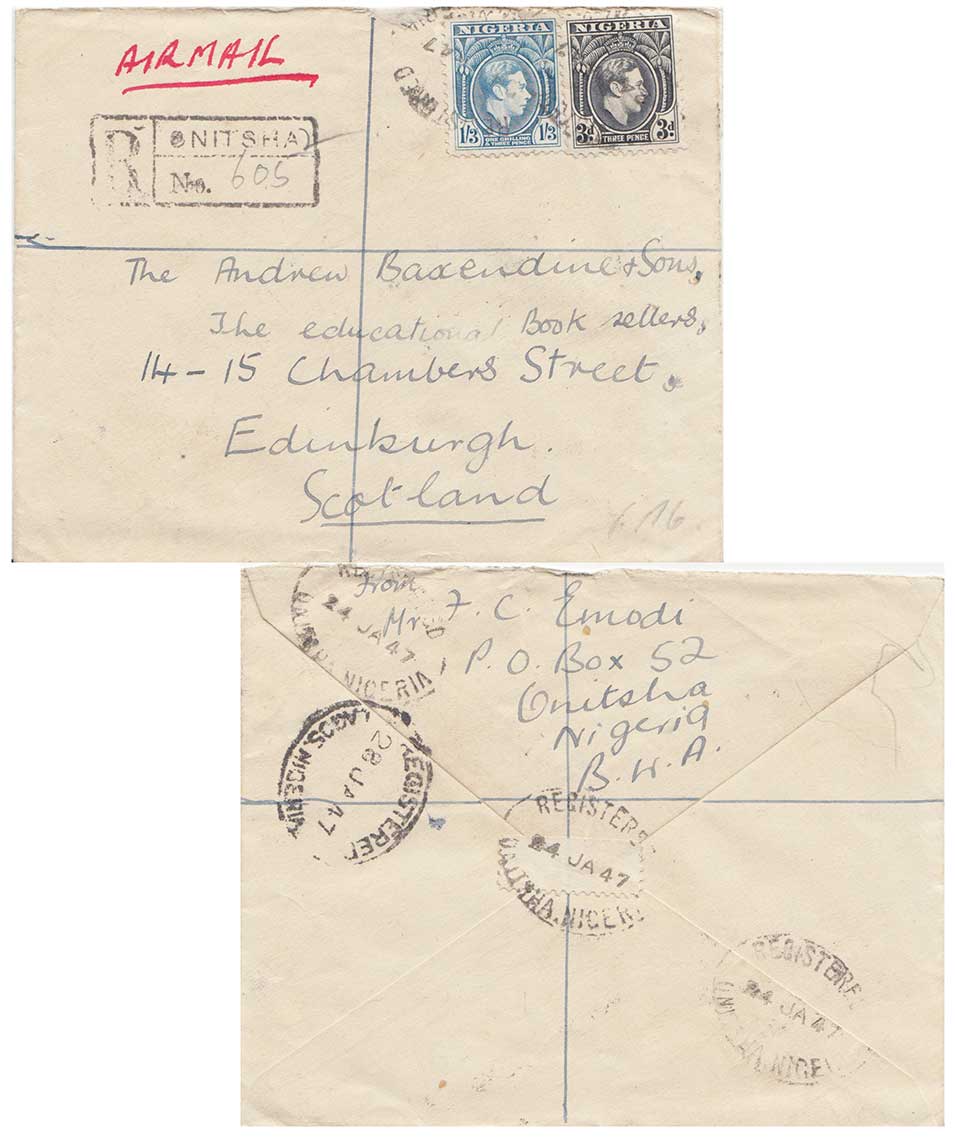 AIRMAIL
NIGERIA
1/3 1/3
ONE SHILLING
& THREE PENCE
NIGERIA
3d 3d
THREE PENCE
R
ONITSHA
No. 605
The Andrew Baxendine & Sons,
The educational Book sellers,
14-15 Chambers Street,
Edinburgh.
Scotland
From
Mr F. C. Emodi
P.O. Box 52
Onitsha
Nigeria
B.W.A.
24 JA 47
NIGERIA
REGISTERED
LAGOS. NIGERIA
28 JA 47
REGISTERE
24 JA 47
ONITSHA. NIGERI
REGISTERE
24 JA 47
NIGE